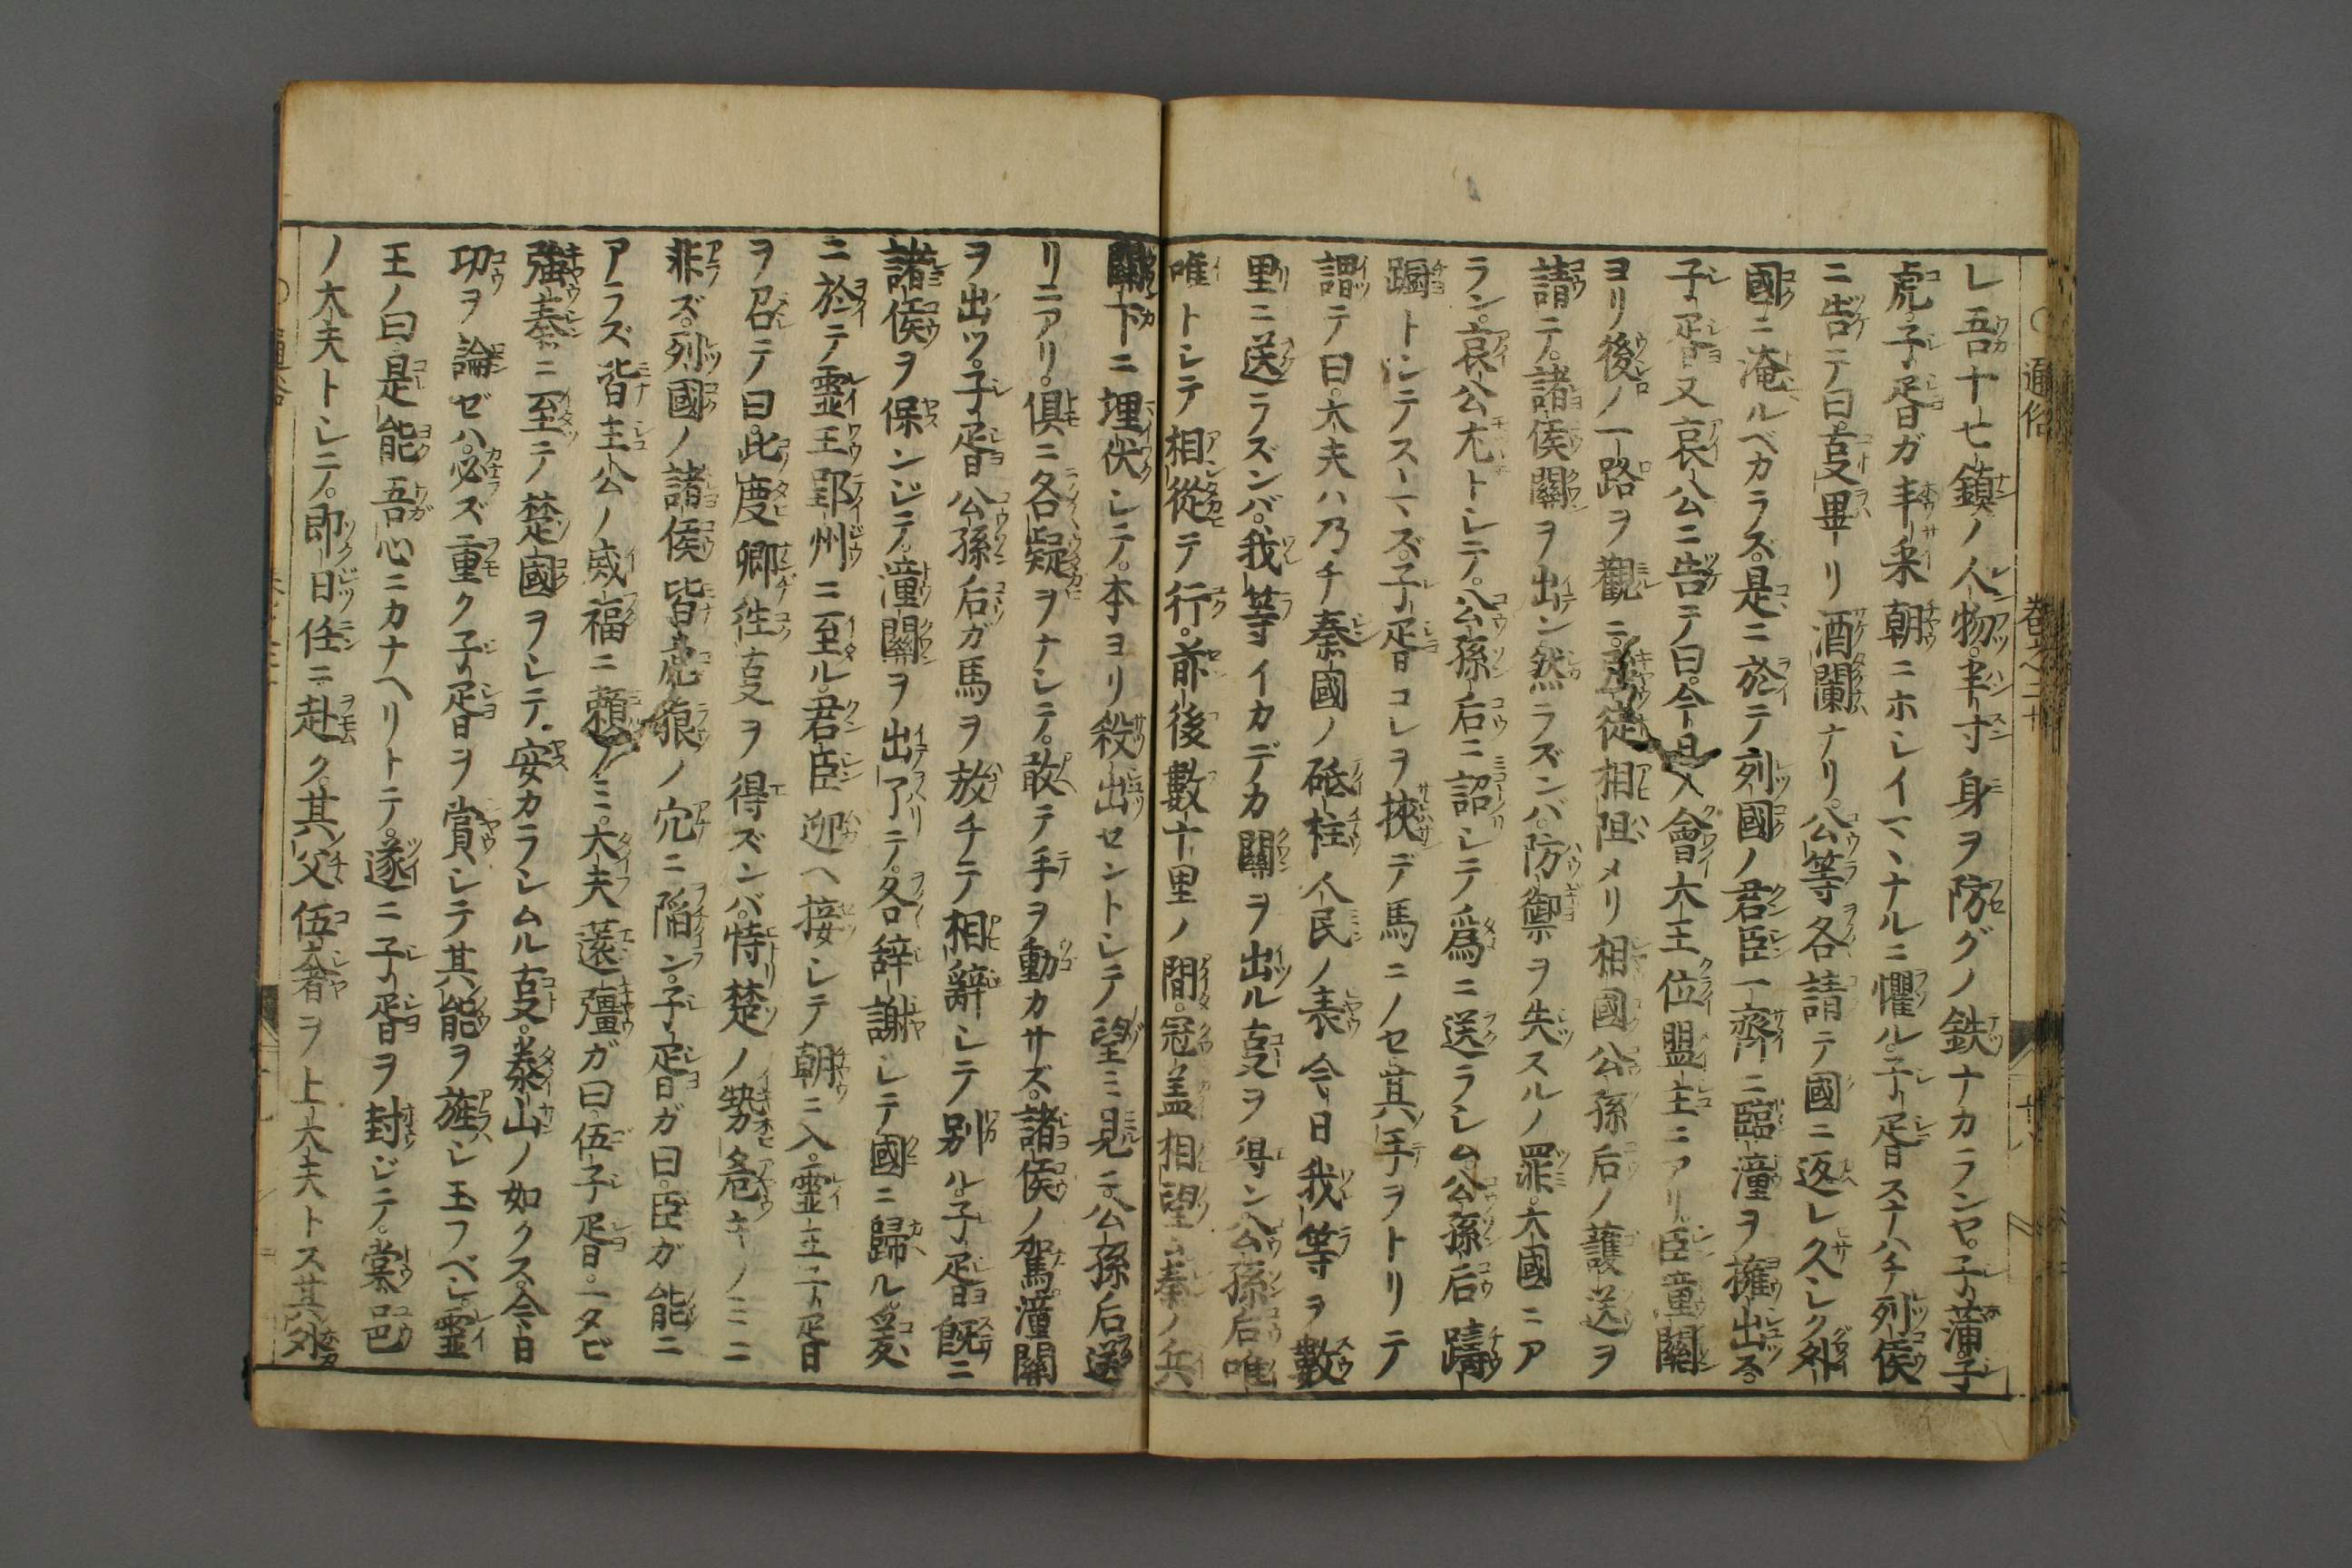 通俗 巻之二十
レ吾十七鎮ノ人物半寸身ヲ防グノ鉄ナカランヤ。子蒲子
虎子胥ガ半来朝ニホシイマヽナルニ懼ル。子胥スナハチ列侯
ニ告テ曰。𫝂畢リ酒闌ナリ。公等各請テ國ニ返レ久シク外
國ニ淹ルベカラズ。是ニ於テ列國ノ君臣一齊ニ臨潼ヲ擁出ス。
子胥又哀公ニ告テ曰。今日入會大王位盟主ニアリ臣童關
ヨリ後ノ一路ヲ觀ニ。徒相阻メリ相國公孫后ノ護送ヲ
請テ。諸侯關ヲ出ン然ラズンバ。防禦ヲ失スルノ罪。大國ニア
ラン。哀公尤トシテ。公孫后ニ詔シテ爲ニ送ラシム。公孫后躊
蹰トシテスヽマズ。子胥コレヲ挾デ馬ニノセ其手ヲトリテ
謂テ曰。大夫ハ乃チ秦國ノ砥柱人民ノ表今日我等ヲ數
里ニ送ラズンバ。我等イカデカ關ヲ出ル𫝂ヲ得ン公孫后唯
唯トシテ相從テ行。前後數十里ノ間。冠盖相望ム秦ノ兵
關下ニ埋伏シテ。本ヨリ殺出セントシテ望ミ見ニ。公孫后送
リニアリ。俱ニ各疑ヲナシテ。敢テ手ヲ動カサズ。諸侯ノ駕潼關
ヲ出ツ。子胥公孫后ガ馬ヲ放チテ相辭シテ別ル。子胥既ニ
諸侯ヲ保ンジテ。潼關ヲ出了テ。各辞謝シテ國ニ歸ル。爰
ニ於テ靈王郢州ニ至ル。君臣迎ヘ接シテ朝ニ入。靈王子胥
ヲ召テ曰。此度卿徃𫝂ヲ得ズンバ。恃楚ノ勢危キノミニ
非ズ。列國ノ諸侯皆虎狼ノ穴ニ陥ン。子胥ガ曰。臣ガ能ニ
アラズ皆主公ノ威福ニ頼ノミ。大夫薳彊ガ曰伍子胥。一タビ
強秦ニ至テ楚國ヲシテ。安カラシムル𫝂。泰山ノ如クス。今日
功ヲ論ゼハ。必ズ重ク子胥ヲ賞シテ其能ヲ旌シ玉フベシ。靈
王ノ曰是能吾心ニカナヘリトテ。遂ニ子胥ヲ封ジテ。棠邑
ノ大夫トシテ。即日任ニ赴ク。其父伍奢ヲ上大夫トス其外